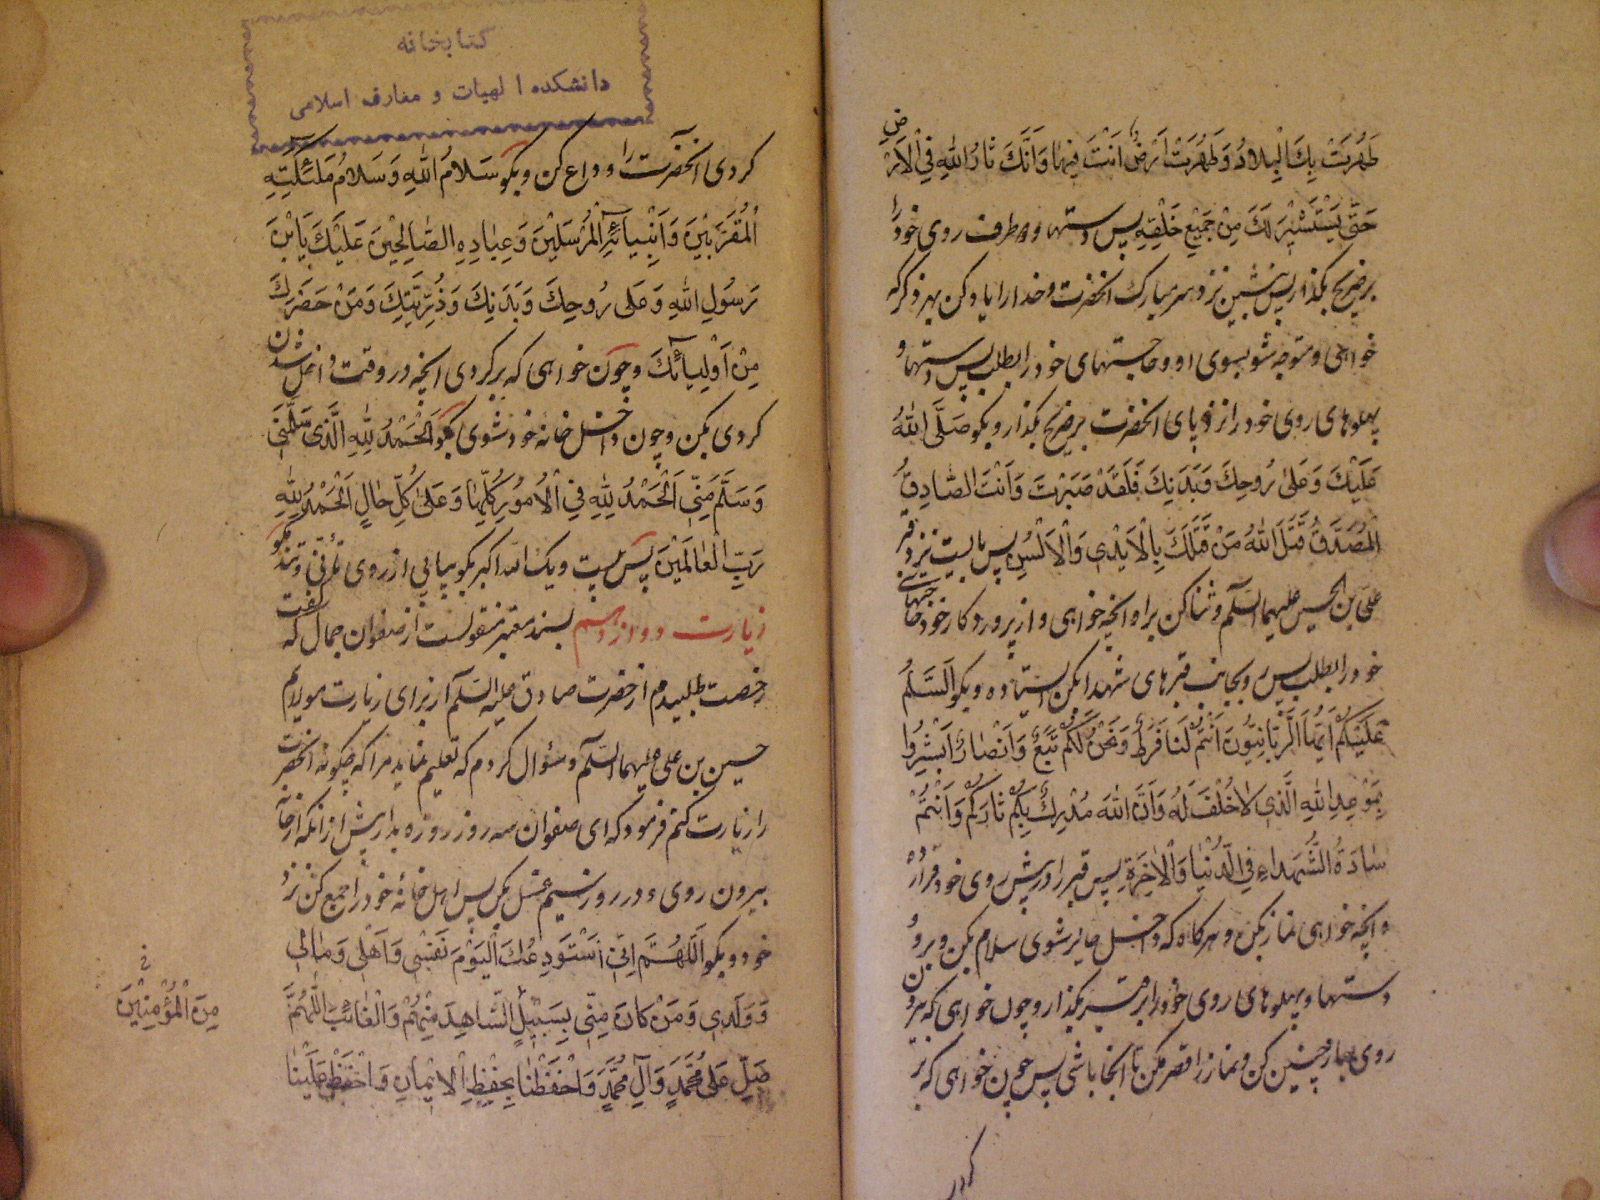 طَهُرَتْ بِكَ الْبِلادُ وَطَهُرَتْ اَرْضٌ اَنْتَ فِيها وَاَنَّكَ ثارُ اللهِ فِي الْاَرْضِ
حَتّٰى يَسْتَثيرَ لَكَ مِنْ جَمِيْعِ خَلْقِهِ پس دستها و دو طرف روى خود را
بر ضريح بگذار پس بنشين نزد سر مبارك انحضرت و خدا را ياد كن بهر ذكر كه
خواهى و متوجه شو بسوى او و حاجتهاى خود را بطلب پس دستها و
پهلوهاى روى خود را نزد پاى انحضرت بر ضريح بگذار و بگو صَلَّى اللهُ
عَلَيْكَ وَعَلى رُوحِكَ وَبَدَنِكَ فَلَقَدْ صَبَرْتَ وَاَنْتَ الصّادِقُ
الْمُصَدَّقُ قَتَلَ اللهُ مَنْ قَتَلَكَ بِالْاَيْدِي وَالْاَلْسُنِ پس بايست نزد قبر
على بن الحسين عليهما السلم و ثنا كن براو انچه خواهى و از پروردكار خود حاجتهاى
خود را بطلب پس رو بجانب قبرهاى شهدا بكن ايستاده و بگو اَلسَّلامُ
عَلَيْكُمْ اَيُّهَا الرَّبّانِيُّونَ اَنْتُمْ لَنا فَرَطٌ وَنَحْنُ لَكُمْ تَبَعٌ وَاَنْصارٌ اَبْشِرُوا
بِمَوْعِدِ اللهِ الَّذِي لاخُلْفَ لَهُ وَاَنَّ اللهَ مُدْرِكٌ بِكُمْ ثارَكُمْ وَاَنْتُمْ
سادَةُ الشُّهَداءِ فِي الدُّنْيا وَالْاٰخِرَةِ پس قبر را در پيش روى خود قرار ده
و انچه خواهى نماز بكن و هركاه كه داخل حاير شوى سلام بكن و برو
دستها و پهلوهاى روى خود را بر قبر بگذار و چون خواهى كه بيرون
روى باز چنين كن و نماز را قصر مكن تا انجا باشى پس چون خواهى كه بر
كردى
كتابخانه
دانشكده الهيات و معارف اسلامى
كردى انحضرت را وداع كن و بگو سَلامُ اللهِ وَسَلامُ مَلٰئِكَتِهِ
الْمُقَرَّبِيْنَ وَاَنْبِيائِهِ الْمُرْسَلِيْنَ وَعِبادِهِ الصّالِحِيْنَ عَلَيْكَ يَابْنَ
رَسُولِ اللهِ وَعَلى رُوحِكَ وَبَدَنِكَ وَذُرِّيَّتِكَ وَمَنْ حَضَرَكَ
مِنْ اَوْلِيائِكَ و چون خواهى كه بر كردى انچه در وقت داخل شدن
كردى بكن و چون داخل خانه خود شوى بگو اَلْحَمْدُ لِلّٰهِ الَّذِي سَلَّمَنِي
وَسَلَّمَ مِنِّي اَلْحَمْدُ لِلّٰهِ فِي الْاُمُورِ كُلِّها وَعَلى كُلِّ حالٍ اَلْحَمْدُ لِلّٰهِ
رَبِّ الْعالَمِيْنَ پس بيست و يك الله اكبر بگو پياپى از روى تأنى و تند مگو
زيارت دوازدهم بسند معتبر منقولست از صفوان جمال كه گفت
رخصت طلبيدم از حضرت صادق عليه السلم از براى زيارت مولايم
حسين بن على عليهما السلم و سؤال كردم كه تعليم نمايد مرا كه چگونه انحضرت
را زيارت كنم فرمود كه اى صفوان سه روز روزه بدار پيش از انكه از خانه
بيرون روى و در روز سيم غسل بكن پس اهل خانهٔ خود را جمع كن نزد
خود و بگو اَللّٰهُمَّ اِنِّي اَسْتَوْدِعُكَ الْيَوْمَ نَفْسِي وَاَهْلِي وَمالِي
وَوَلَدِي وَمَنْ كانَ مِنِّي بِسَبِيْلٍ الشّاهِدَ مِنْهُمْ وَالْغائِبَ اَللّٰهُمَّ
مِنَ الْمُؤْمِنِيْنَ
صَلِّ عَلى مُحَمَّدٍ وَآلِ مُحَمَّدٍ وَاحْفَظْنا بِحِفْظِ الْاِيْمانِ وَاحْفَظْ عَلَيْنا